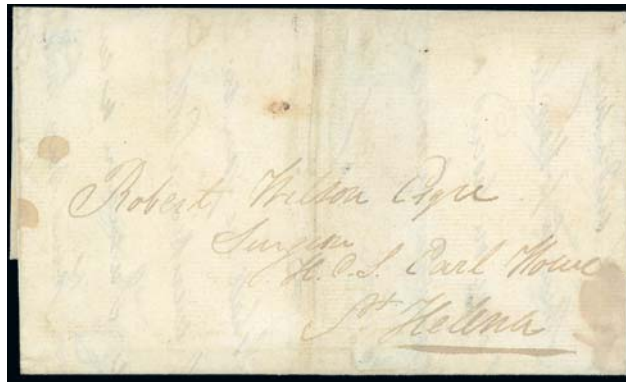 Robert Wilson Esqre
Surgeon
H.C.S. Earl Howe
St Helena